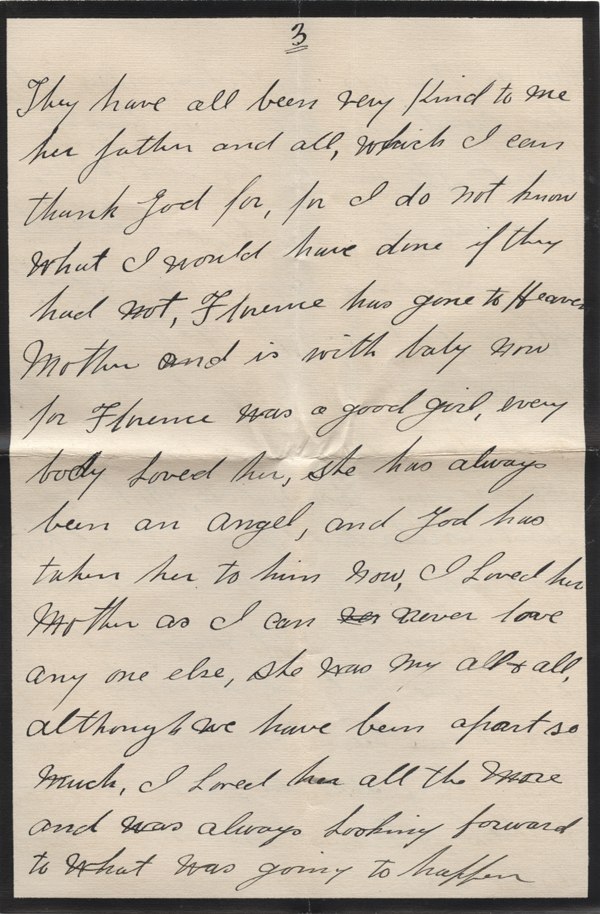 3
They have all been very kind to me
her father and all, which I can
thank God for, for I do not know
what I would have done if they
had not, Florence has gone to Heaven
Mother and is with baby now
for Florence was a good girl, every
body loved her, she has always
been an angel, and God has
taken her to him now, I Loved her
Mother as I can never love
any one else, she was my all & all,
although we have been apart so
much, I Loved her all the more
and was always looking forward
to what was going to happen